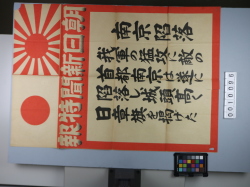 朝日新聞特報
南京陥落
我軍の猛攻に敵の
首都南京は遂に
陥落し城頭高く
日章旗を掲げた